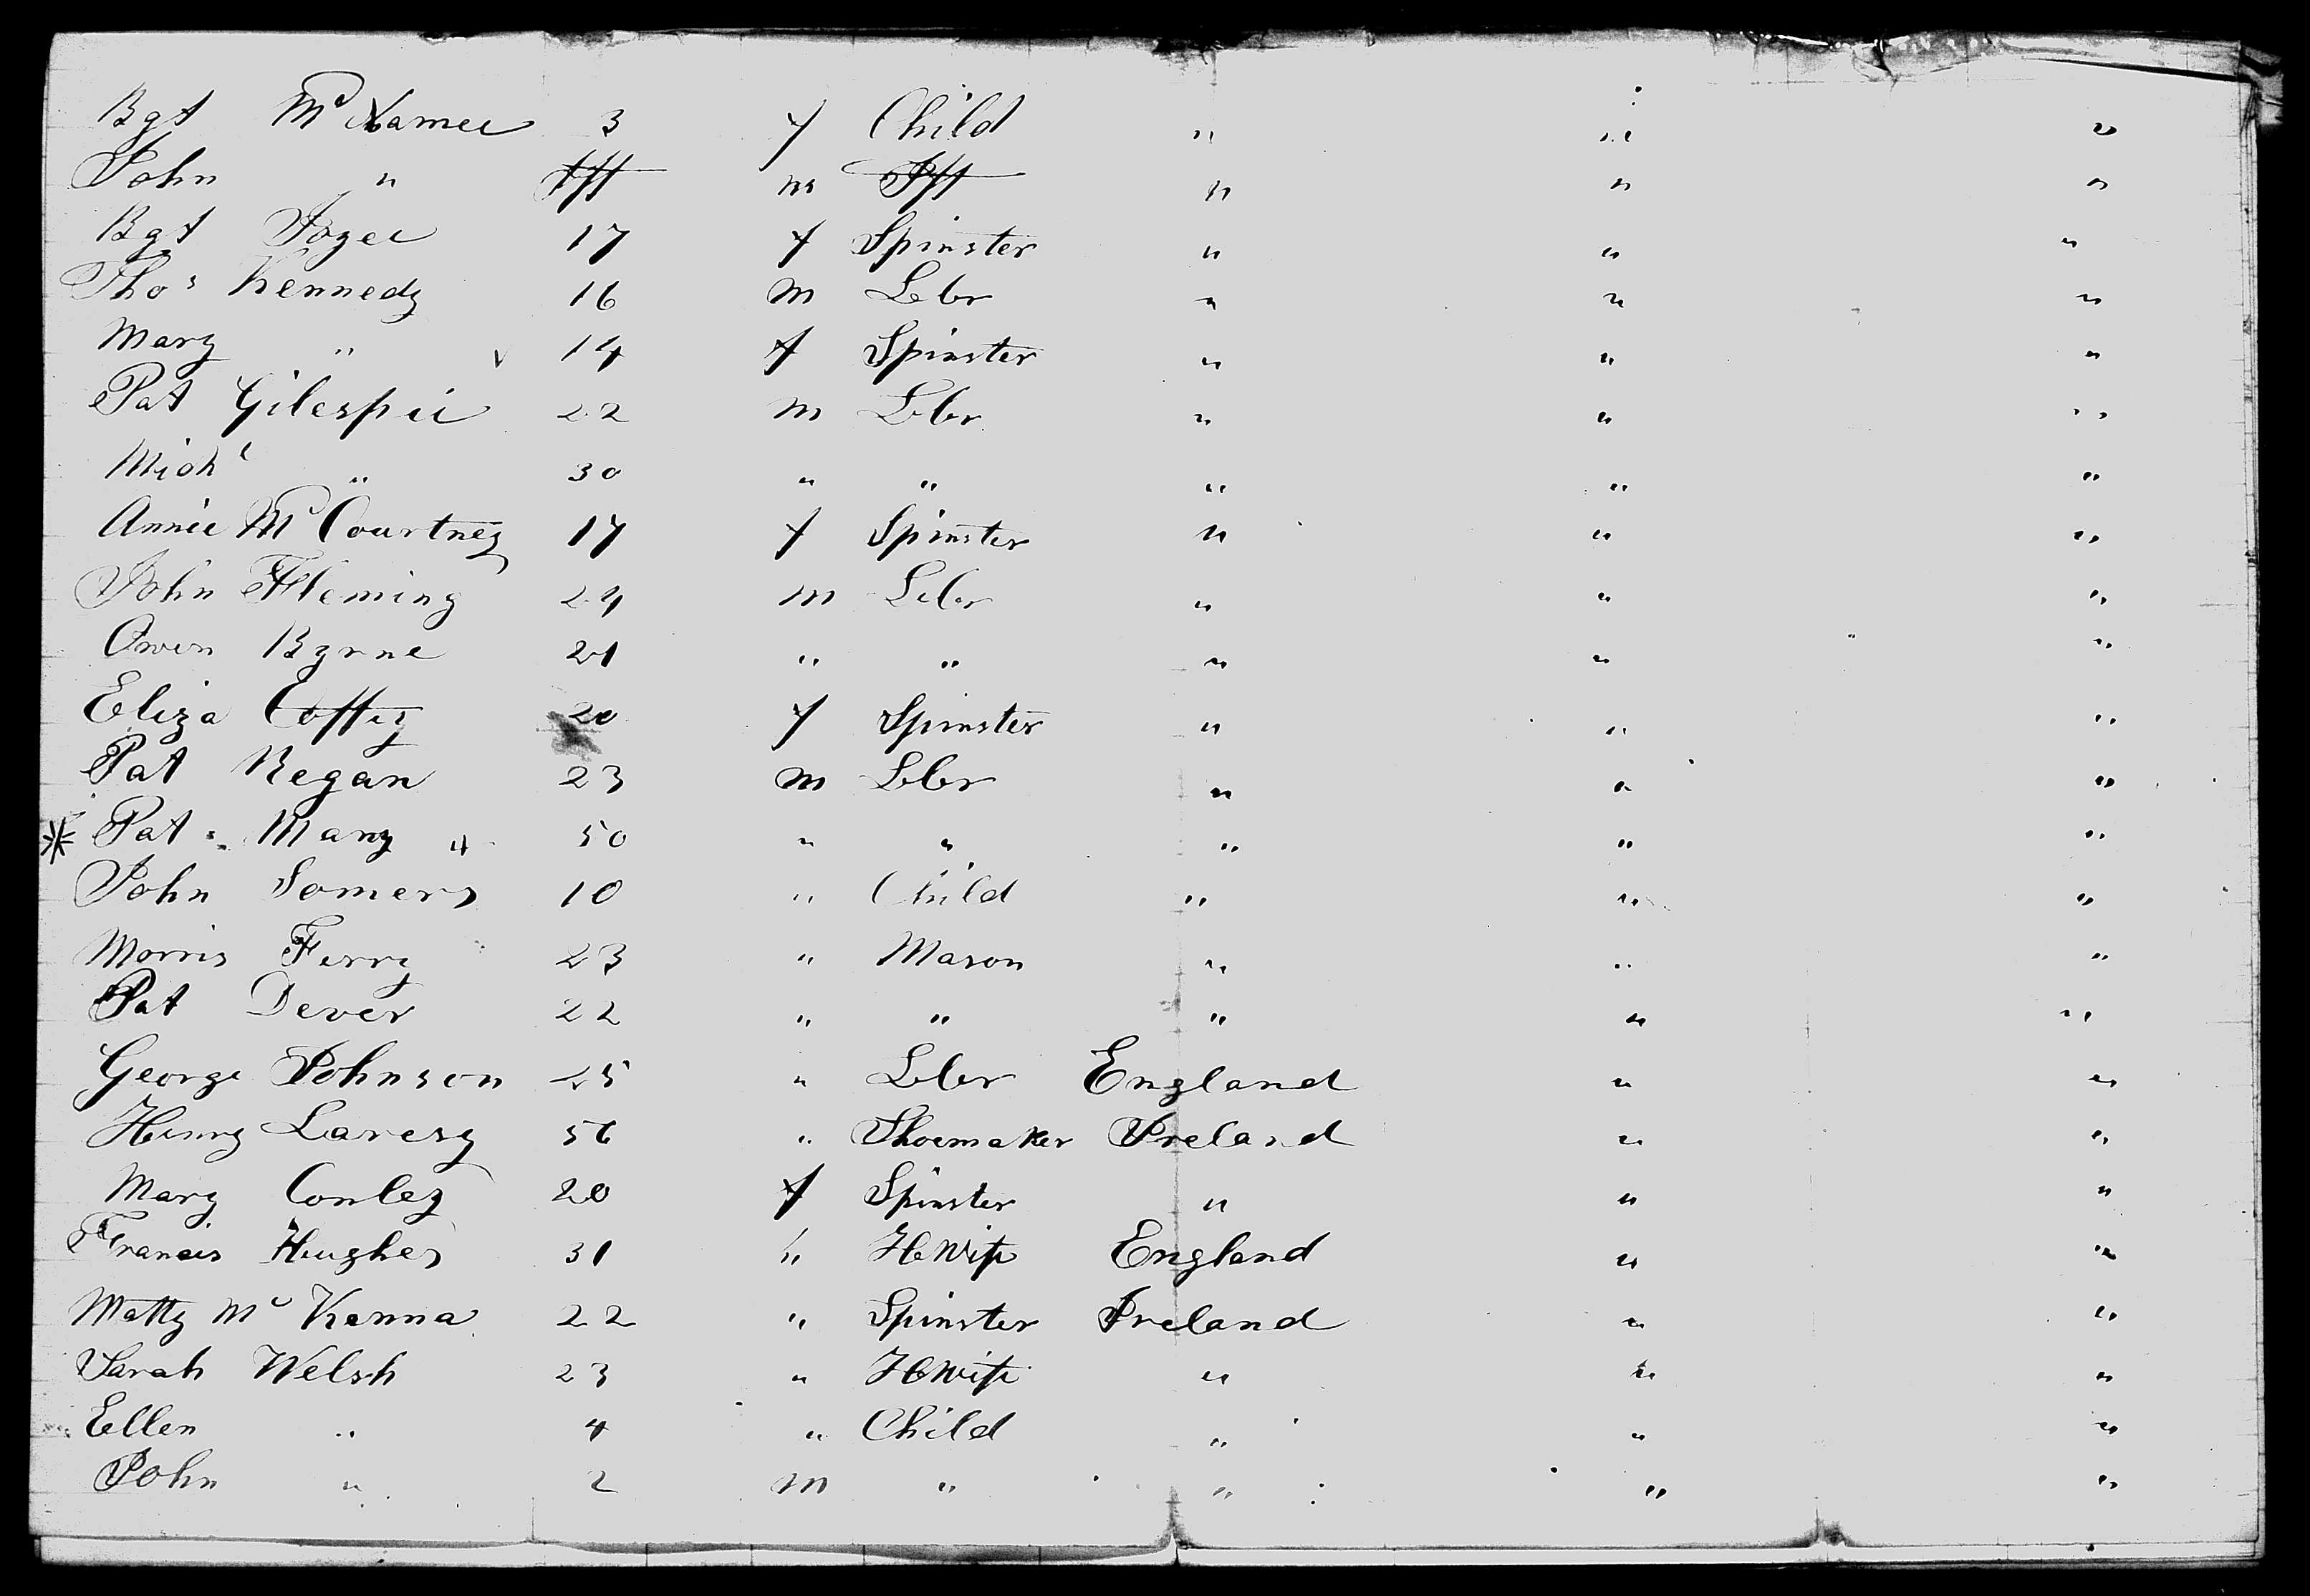 Bgt McNamee 3 f Child " " "
John " Ifft m Ifft " " "
Bgt Joyce 17 f Spinster " " "
Thos Kennedy 16 m Lbr " " "
Mary " 14 f Spinster " " "
Pat Gilespie 22 m Lbr " " "
Michl " 30 " " " " "
Annie McCourtney 17 f Spinster " " "
John Fleming 24 m Lbr " " "
Owen Byrne 21 " " " " "
Eliza Coffey 20 f Spinster " " "
Pat Regan 23 m Lbr " " "
* Pat Many 4 50 " " " " "
John Somers 10 " Child " " "
Morris Ferry 23 " Mason " " "
Pat Dever 22 " " " " "
George Johnson 25 " Lbr England " "
Henry Laresy 56 " Shoemaker Ireland " "
Mary Conley 20 f Spinster " " "
Francis Hughes 31 " HWife England " "
Matty McKenna 22 " Spinster Ireland " "
Sarah Welsh 23 " HWife " " "
Ellen " 4 " Child " " "
John " 2 m " " " "